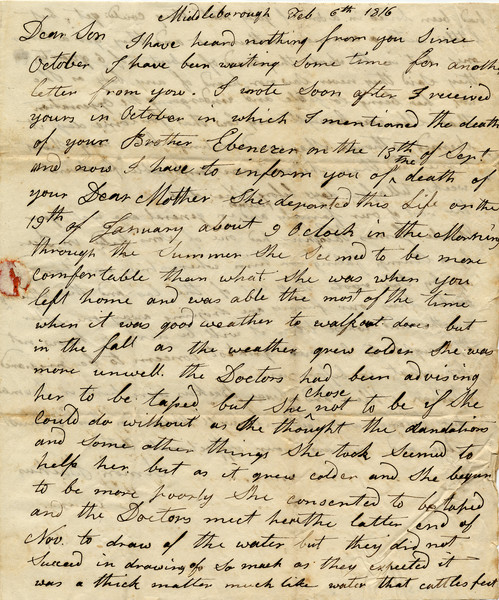 Middleborough Feb. 6th 1816
Dear Son I have heard nothing from you Since
October I have been waiting Some time for anoth
letter from you. I wrote Soon after I received
yours in October in which I mentioned the death
of your Brother Ebenezer on the 13th of Sept
and now I have to inform you of the death of
your Dear Mother She departed this Life on the
19th of January about 9 Oclock in the Morning
through the Summer She Seemed to be more
comfortable than what She was when you
left home and was able the most of the time
when it was good weather to walk out dores but
in the fall as the weather grew colder She was
more unwell. the Doctors had been advising
her to be taped but She chose not to be if She
could do without as She thought the dandations
and Some other things She took Seemed to
help her. but as it grew colder and She begun
to be more poorly She consented to be taped
and the Doctors meet here the latter end of
Nov. to draw of the water but they did not
Succeed in drawing of So much as they expected it
was a thick matter much like water that cattles feet